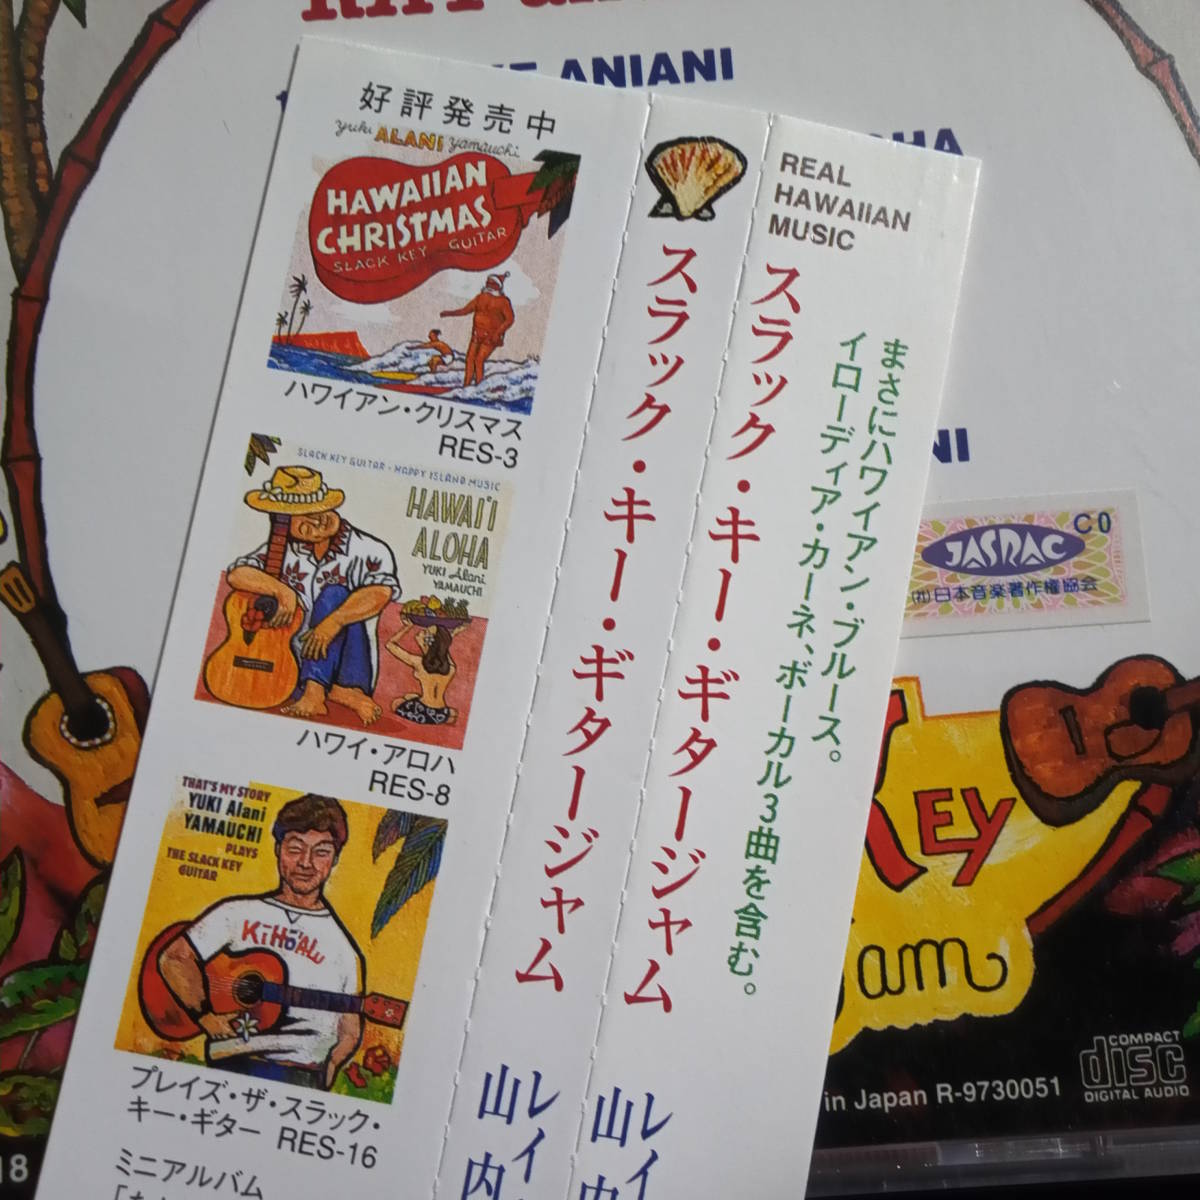 ANIANI
好評発売中
yuki ALANI yamauchi
HAWAIIAN
CHRISTMAS
SLACK KEY GUITAR
ハワイアン・クリスマス
RES-3
SLACK KEY GUITAR・HAPPY ISLAND MUSIC
HAWAI'I
ALOHA
YUKI Alani
YAMAUCHI
ハワイ・アロハ
RES-8
THAT'S MY STORY
YUKI Alani
YAMAUCHI
PLAYS
THE SLACK KEY
GUITAR
KiHo'ALu
プレイズ・ザ・スラック・
キー・ギター RES-16
ミニアルバム
スラック・キー・ギタージャム
レイ
山内
REAL
HAWAIIAN
MUSIC
スラック・キー・ギタージャム
レイ
山
まさにハワイアン・ブルース。
イローディア・カーネ、ボーカル3曲を含む。
JASRAC
C0
(社)日本音楽著作権協会
KEY
Jam
COMPACT
disc
DIGITAL AUDIO
in Japan R-9730051
18